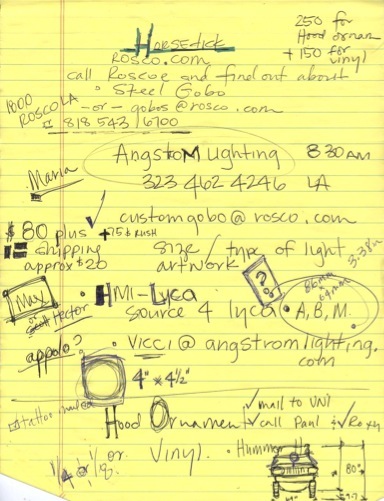 250 for
Hood ornam
+ 150 for
vinyl
HORSETICK
ROSCO.com
call Roscoe and find out about
• Steel Gobo
-or- gobos@rosco.com
1800
ROSCO LA
818 543 6700
Angstrom Lighting 830 AM
Maria
323 462 4246 LA
customgobo@rosco.com
$80 plus +75 $ RUSH
shipping
approx $20
size / type of light
artwork
3.38in
??
86mm
64mm
Max
Scott Hector
• HMI-Lyca
source 4 lyca • A, B, M.
appolo?
• VICCI @ angstromlighting.
com
4" x 4½"
tattoo
Hood Ornament
✓ mail to UNI
✓ call Paul & ✓ Roxy
1/4 or 1/8.
1/2 or Vinyl. • Hummer H2
80"